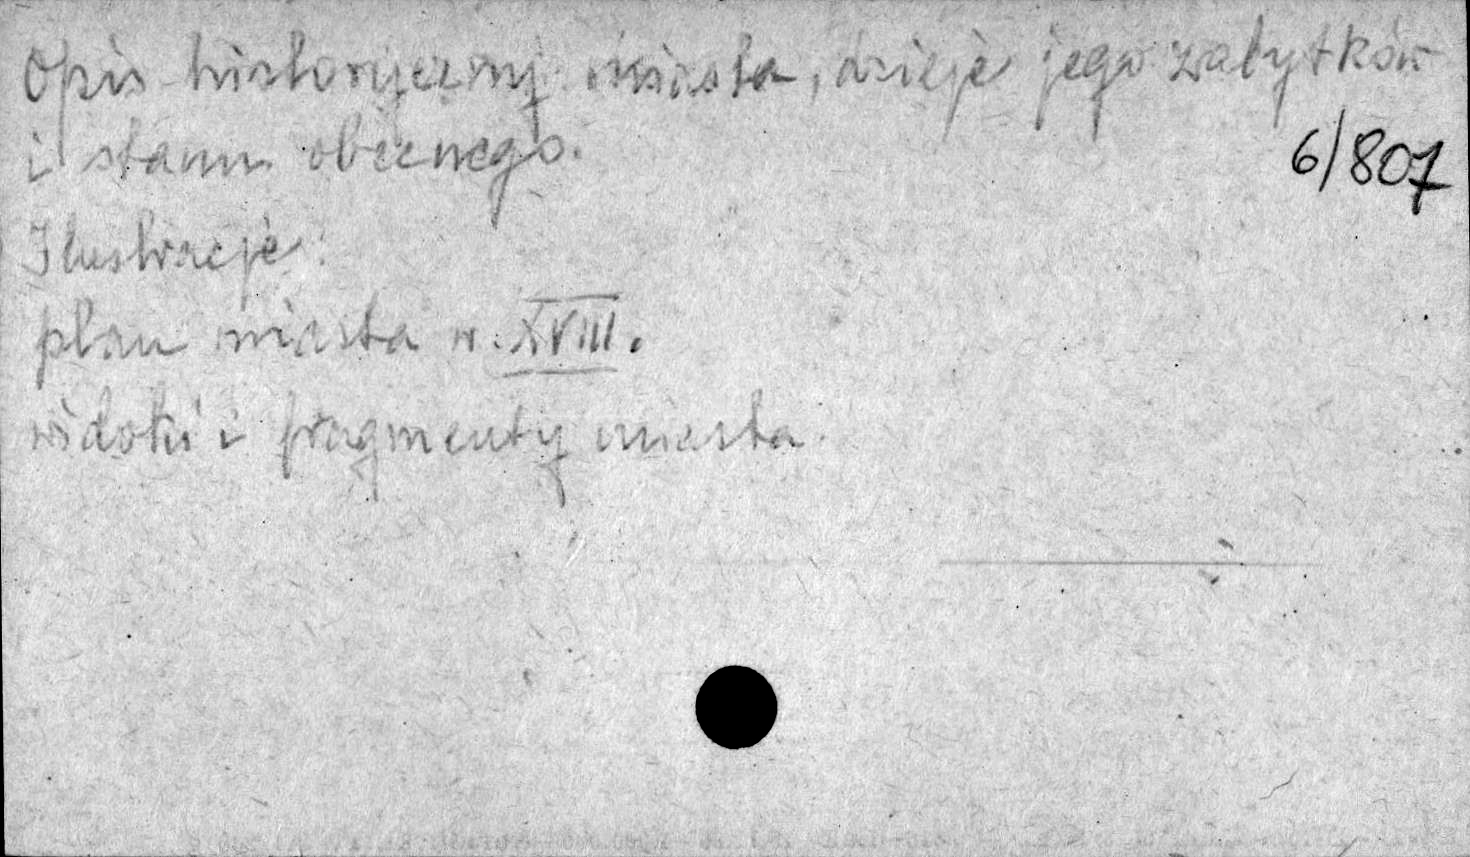 Opis historyczny miasta, dzieje jego zabytków
i stanu obecnego.
6/807
Ilustracje:
plan miasta w. XVIII.
widoki i fragmenty miasta.